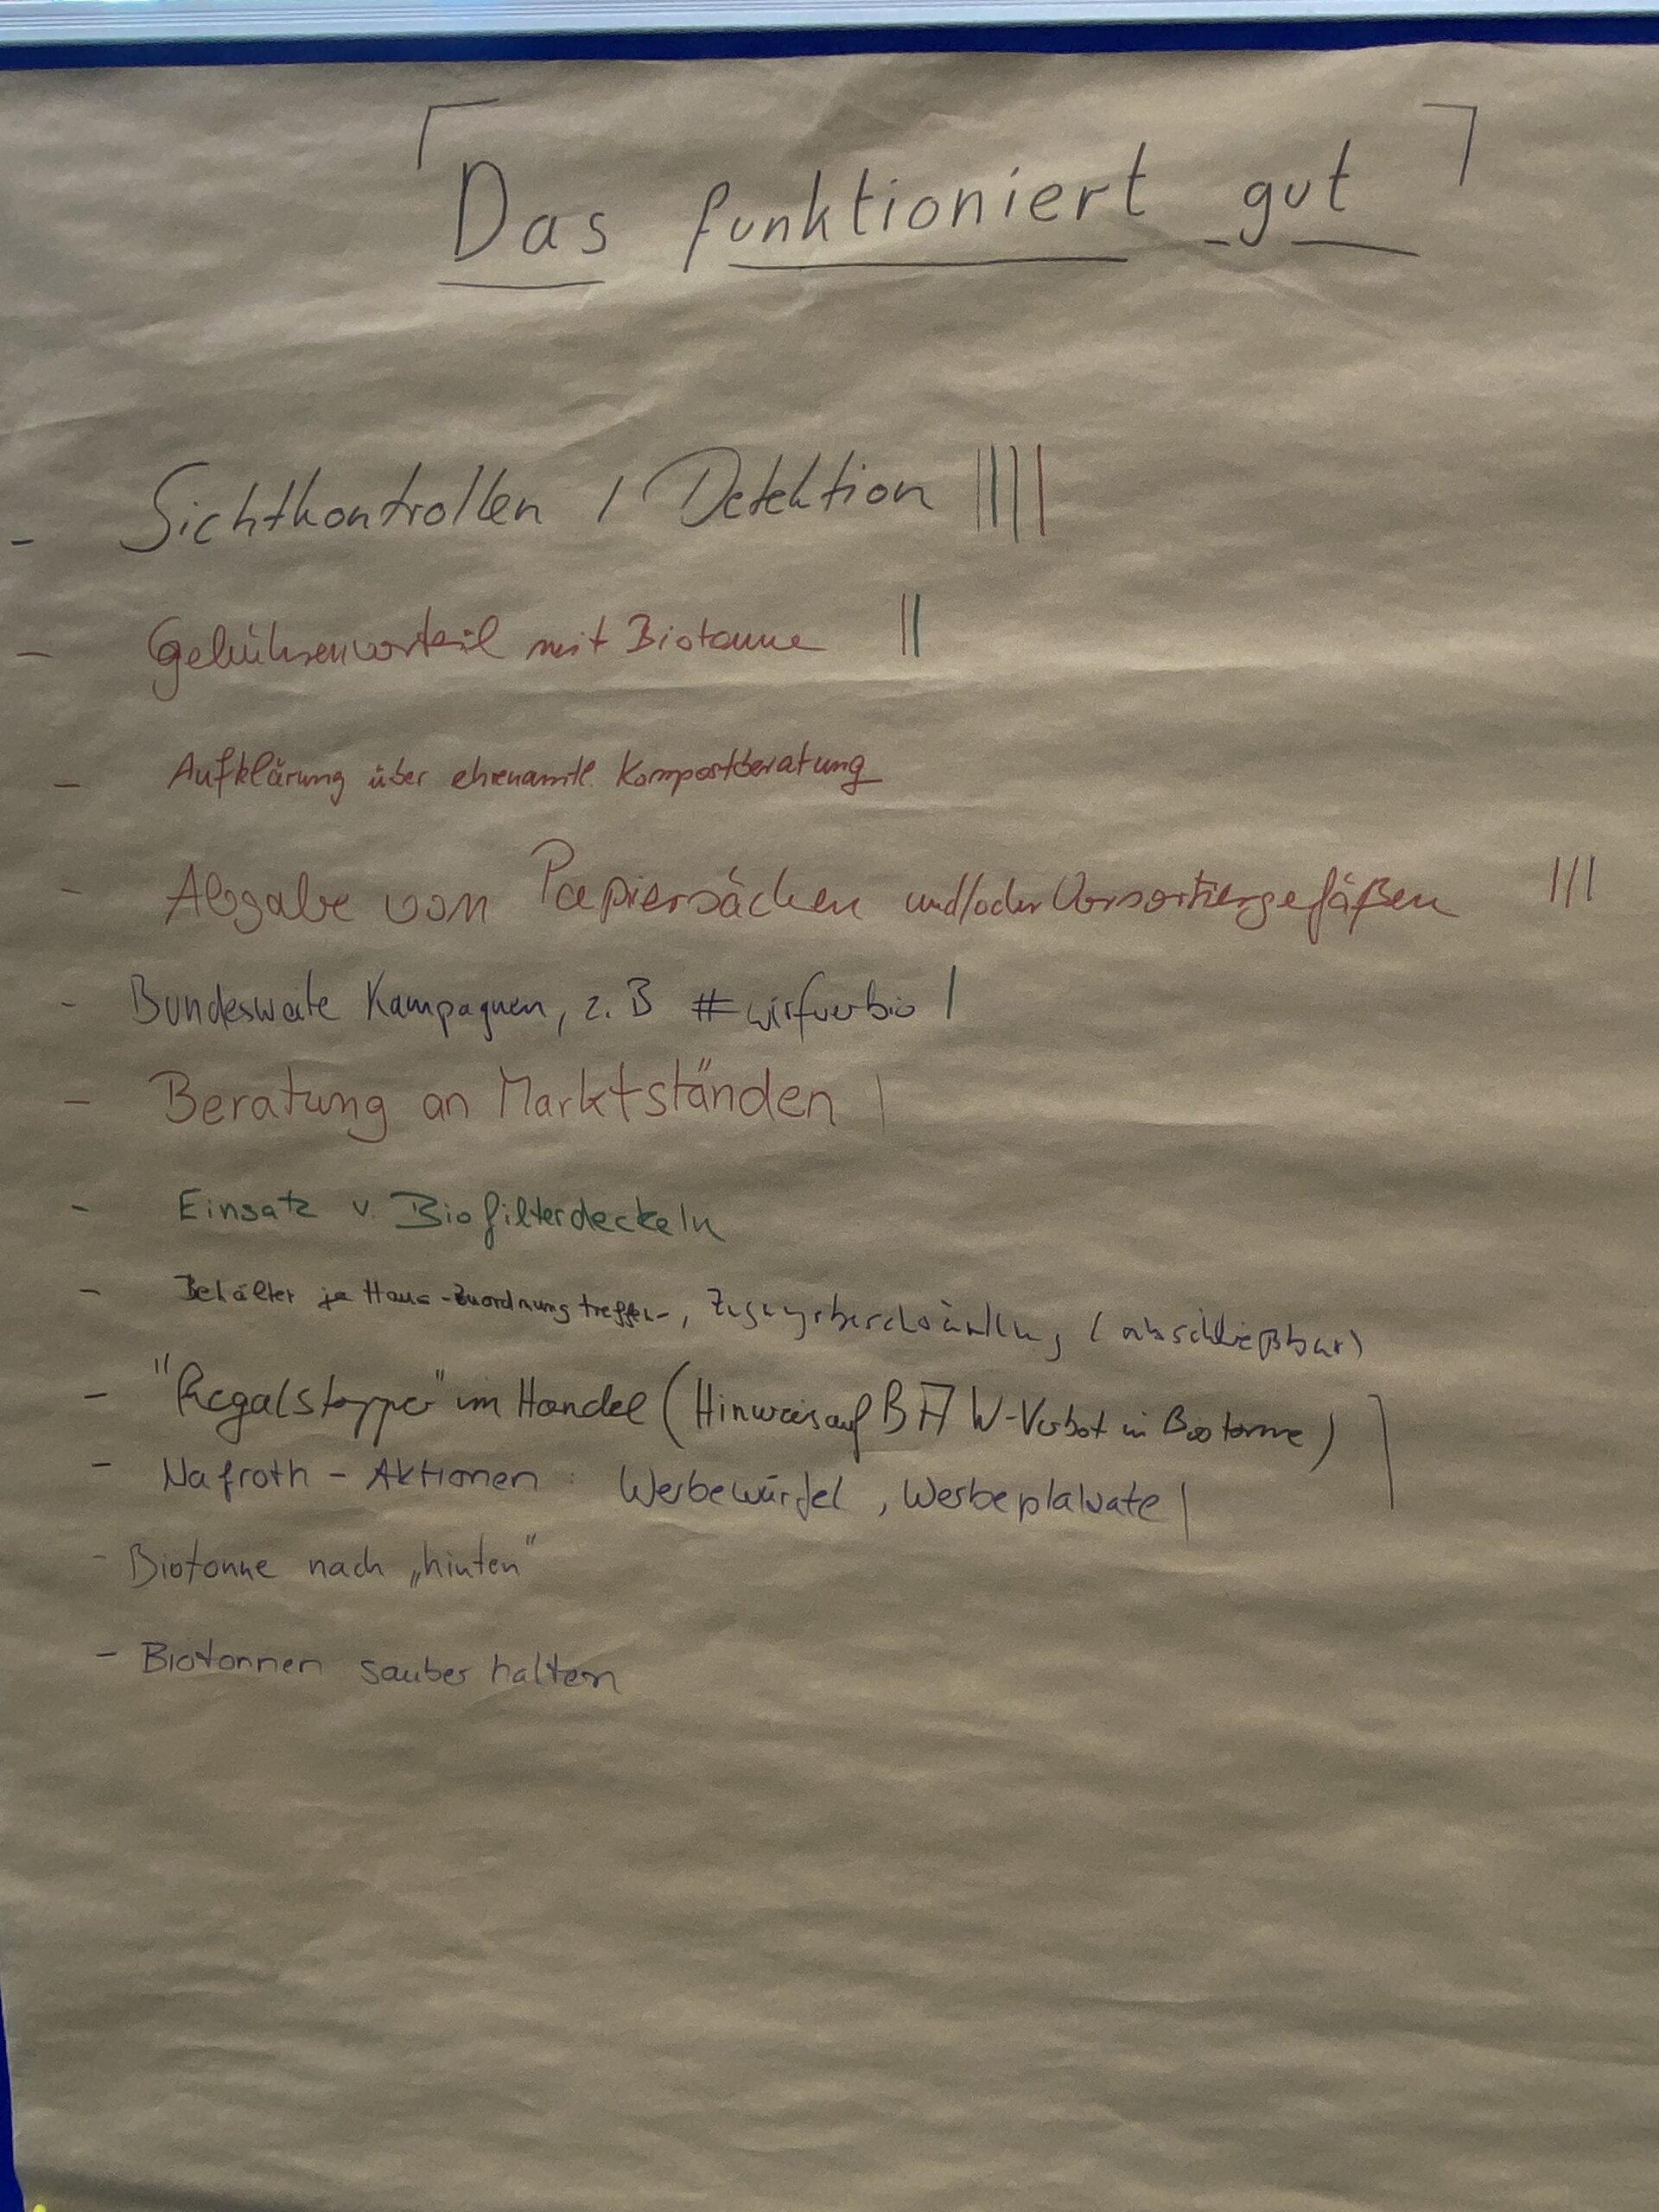 Das funktioniert gut
- Sichtkontrollen / Detektion ||||
- Gebührenvorteil mit Biotonne ||
- Aufklärung über ehrenamtl. Kompostberatung
- Abgabe von Papiersäcken und/oder Vorsortiergefäßen |||
- Bundesweite Kampagnen, z.B #wirfuerbio |
- Beratung an Marktständen |
- Einsatz v. Biofilterdeckeln
- Behälter je Haus -Zuordnung treffen-, (abschließbar)
- "Regalstopper" im Handel (Hinweis auf BAW-Verbot in Biotonne)
- Aktionen: Werbewürfel, Werbeplakate |
- Biotonne nach „hinten"
- Biotonnen sauber halten